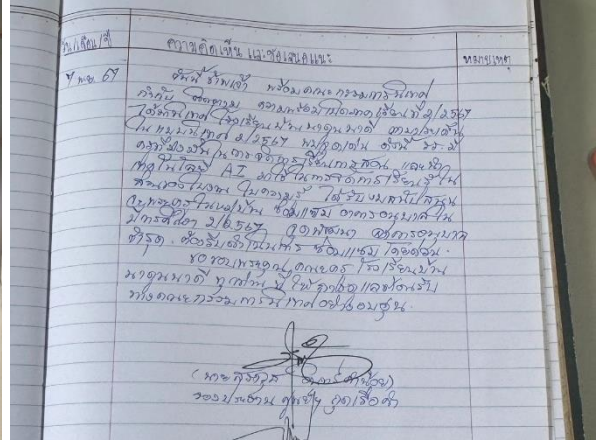 วัน/เดือน/ปี ความคิดเห็น และข้อเสนอแนะ หมายเหตุ
7 พ.ย. 67 วันนี้ข้าพเจ้า พร้อมคณะกรรมการนิเทศ
กำกับ ติดตาม ความพร้อมเปิดภาคเรียนที่ 2/2567
ได้มานิเทศ โรงเรียนบ้านนาดูนนาดี
ในการนิเทศ 2/2567 พบจุดเด่น ดังนี้
ในการจัดการเรียนการสอน และนำ
เทคโนโลยี AI มาใช้ในการจัดการเรียนรู้ ใน
ได้รับงบสนับสนุน
ซ่อมแซม อาคารอนุบาล ใน
ปีการศึกษา 2/2567 จุดพัฒนา อาคารอนุบาล
ชำรุด ต้องรีบดำเนินการ ซ่อมแซม โดยด่วน
ขอขอบพระคุณ คณะครู โรงเรียนบ้าน
นาดูนนาดี ทุกท่าน ที่ให้การต้อนรับ
ทางคณะกรรมการนิเทศอย่างอบอุ่น
(นาย
รองประธาน ศูนย์ฯ กุดเรือคำ